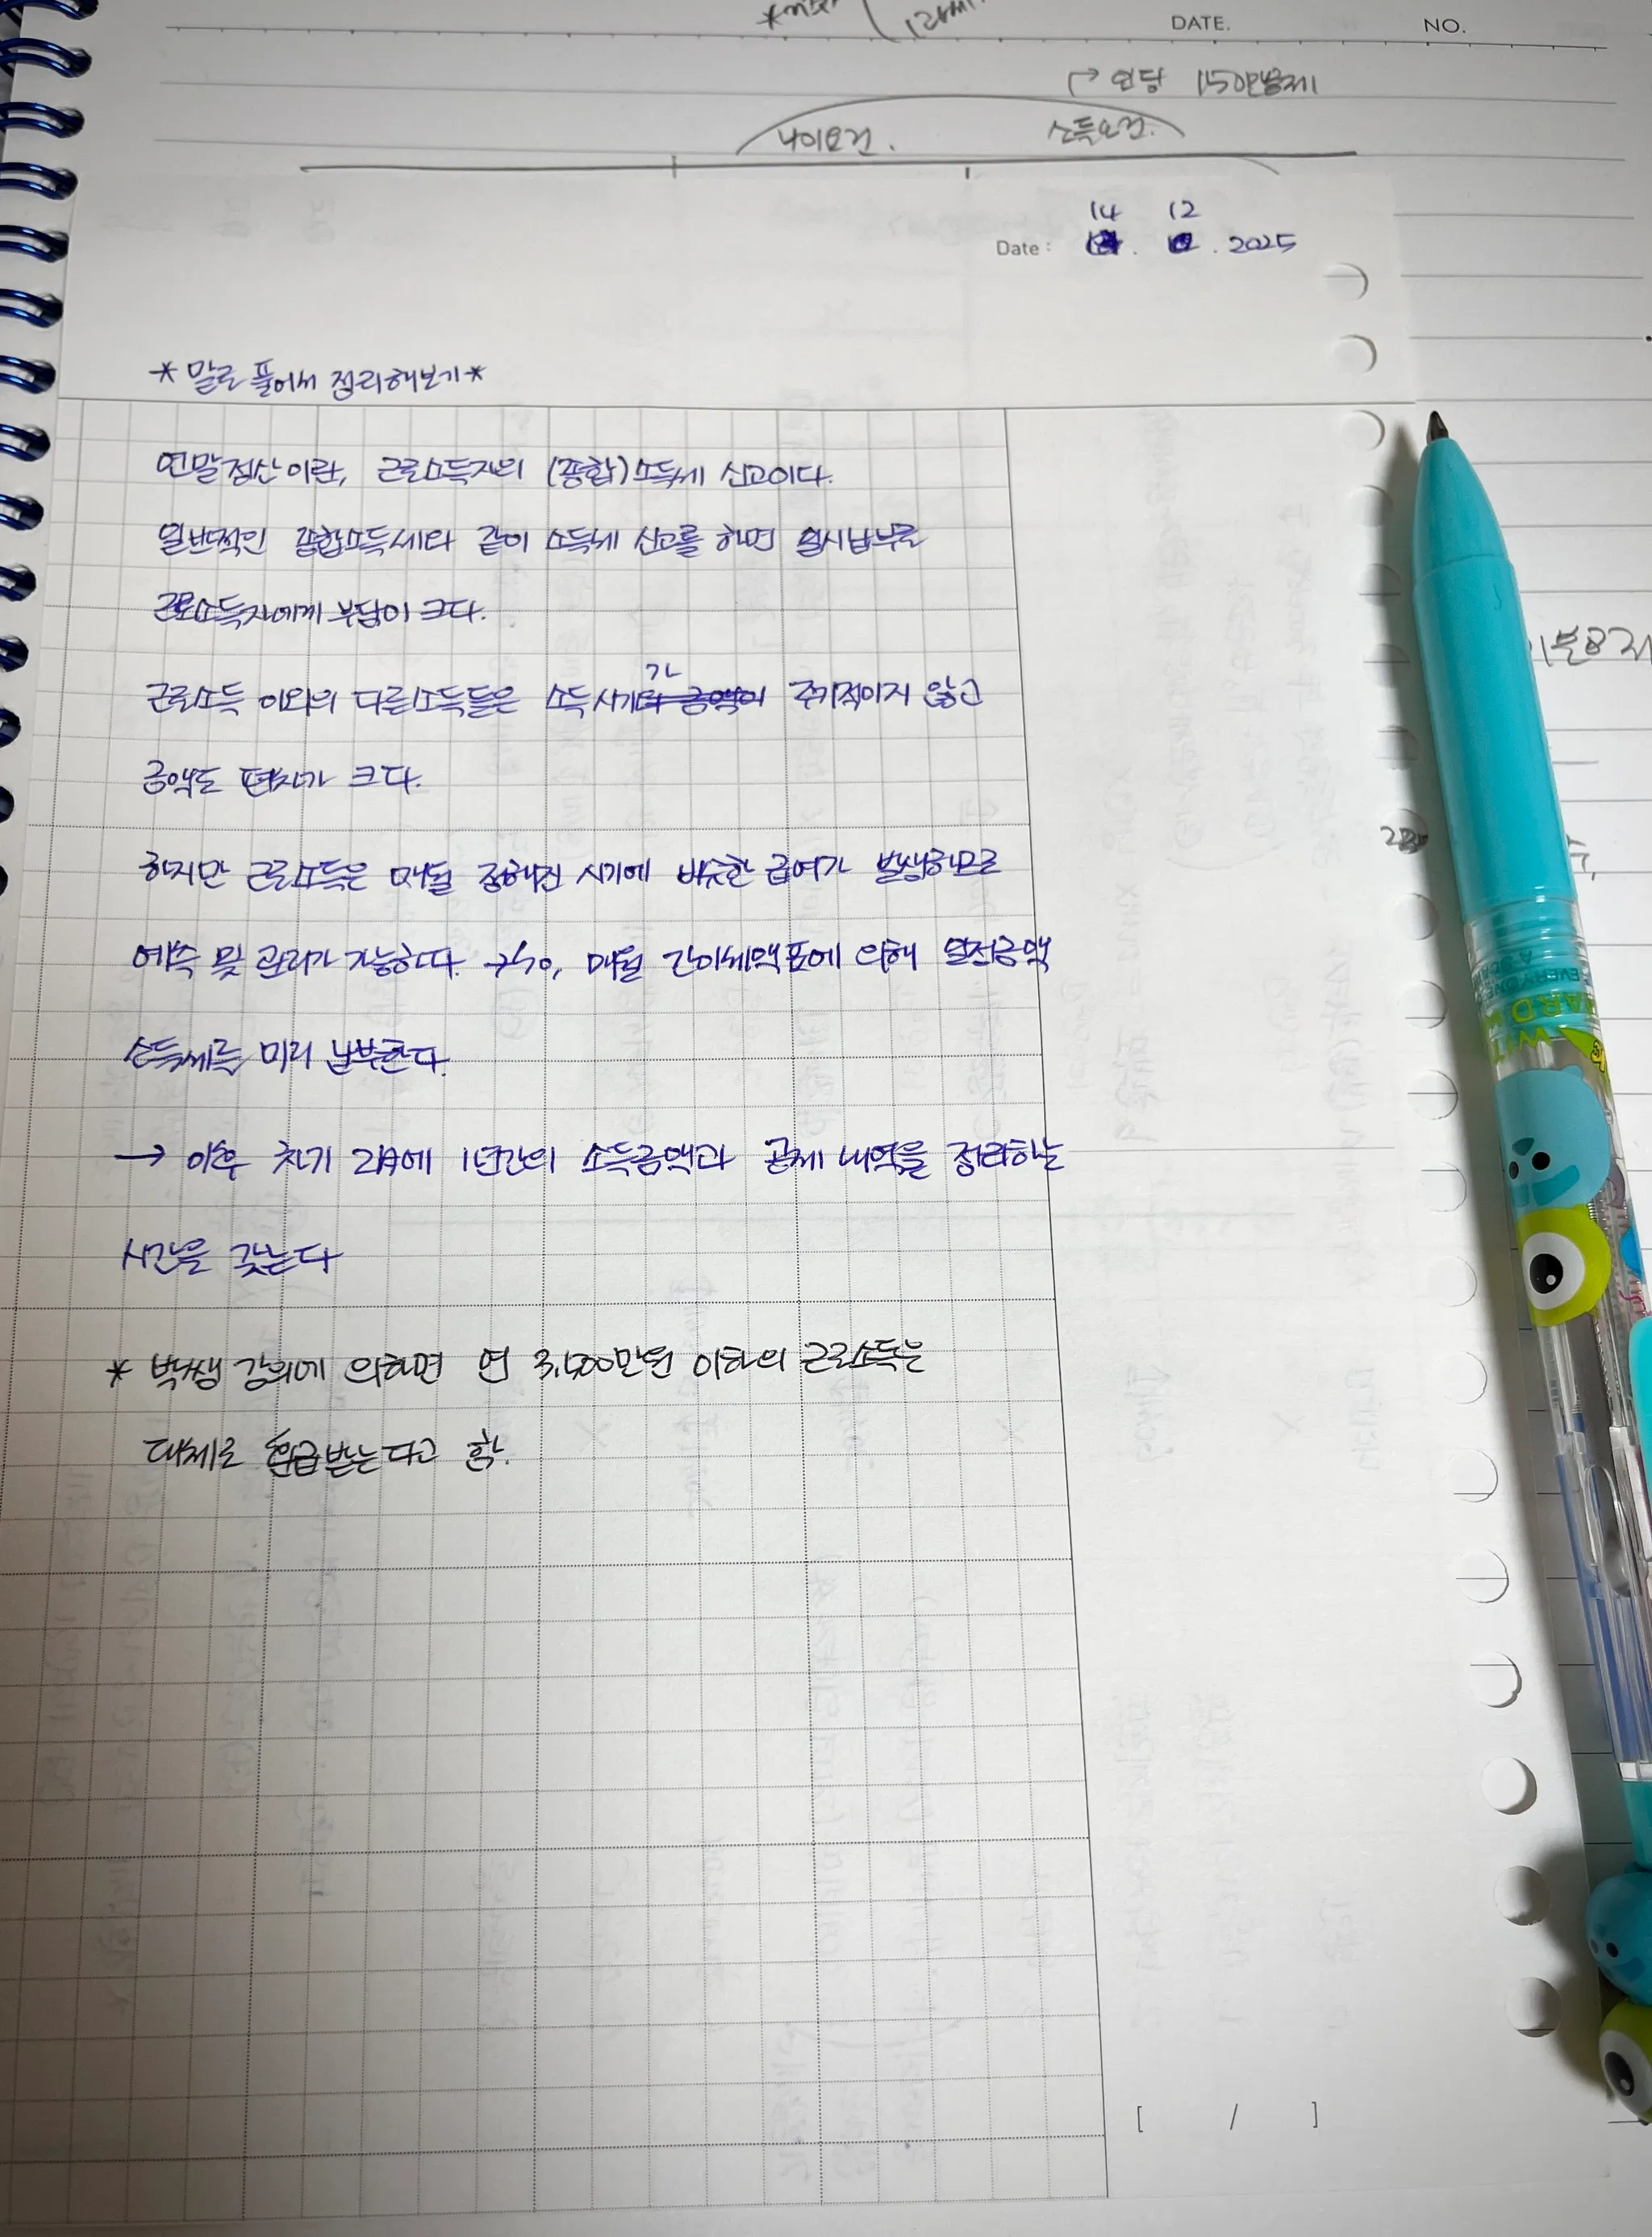 DATE. NO.
→ 인당 150만공제
나이요건. 소득요건.
14 12
Date : . . 2025
*말로 풀어서 정리해보기*
연말정산이란, 근로소득자의 (종합)소득세 신고이다.
일반적인 종합소득세와 같이 소득세 신고를 하면 일시납부로
근로소득자에게 부담이 크다.
근로소득 이외의 다른소득들은 소득시기가 주기적이지 않고
금액도 편차가 크다.
하지만 근로소득은 매월 정해진 시기에 비슷한 급여가 발생하므로
예측 및 관리가 가능하다. → so, 매월 간이세액표에 의해 일정금액
소득세를 미리 납부한다.
→ 이후 차기 2月에 1년간의 소득금액과 공제 내역을 정리하는
시간을 갖는다
* 박쌤 강의에 의하면 연 3,500만원 이하의 근로소득은
대체로 환급받는다고 함.
[ / ]